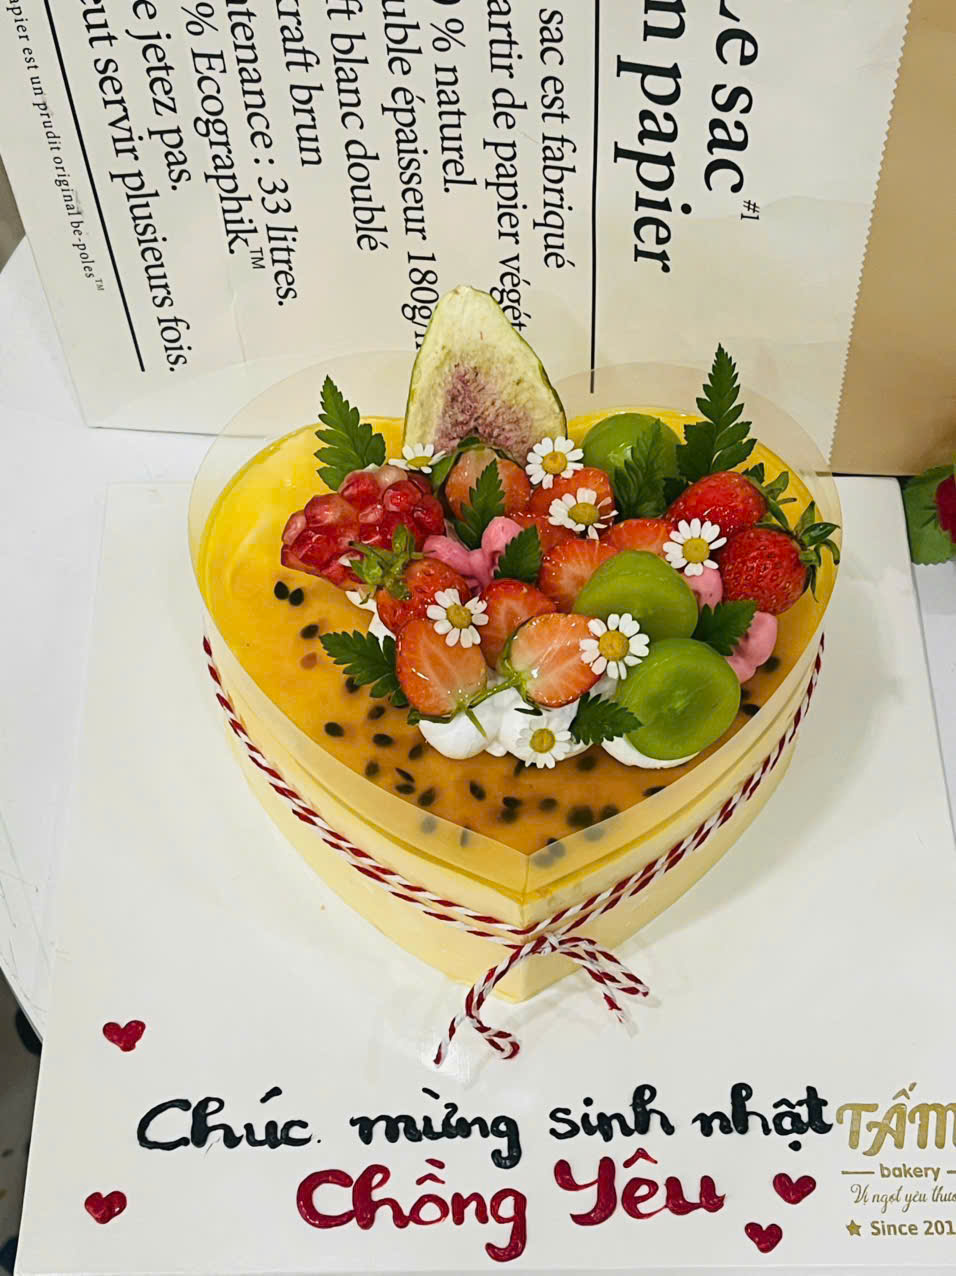 Le sac
#1
n papier
sac est fabriqué
artir de papier végét
% naturel.
uble épaisseur 180g/
ft blanc doublé
kraft brun
ntenance : 33 litres.
% Ecographik.™
e jetez pas.
eut servir plusieurs fois.
apier est un prudit original be-poles™
Chúc mừng sinh nhật
Chồng Yêu
TÂM
bakery
Vị ngọt yêu thươ
Since 201